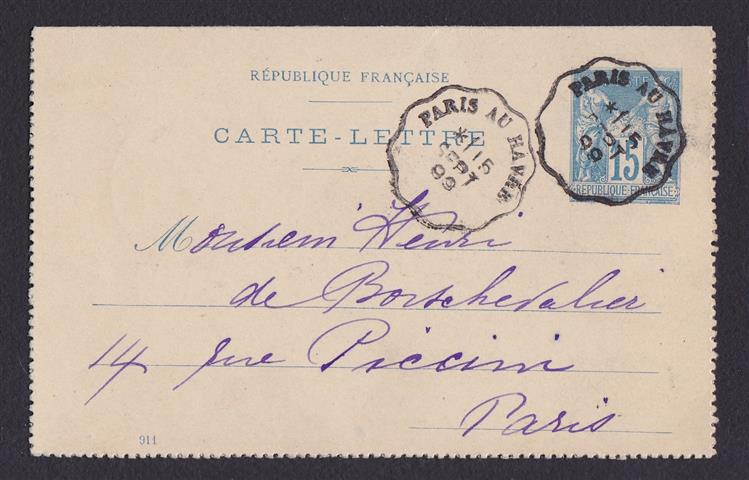 RÉPUBLIQUE FRANÇAISE
CARTE-LETTRE
PARIS AU HAVRE
*
15
SEPT
99
PARIS AU HAVRE
*
15
99
15
RÉPUBLIQUE FRANÇAISE
Monsieur Henri
de Boischevalier
14 rue Piccini
Paris
911